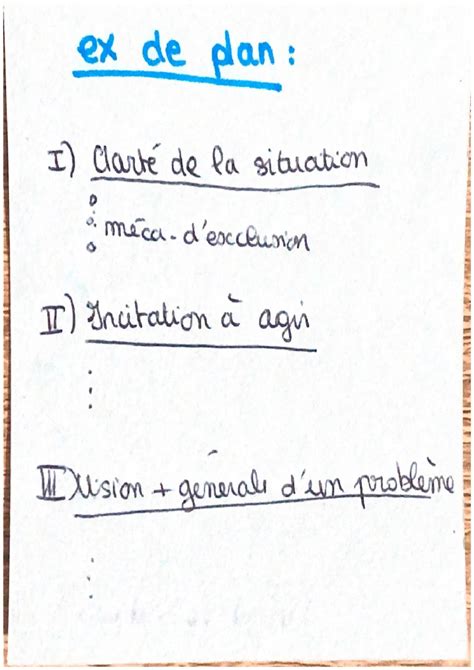 ex de plan :
I) Clarté de la situation
méca. d'exclusion
II) Incitation à agir
III) Vision + générale d'un problème